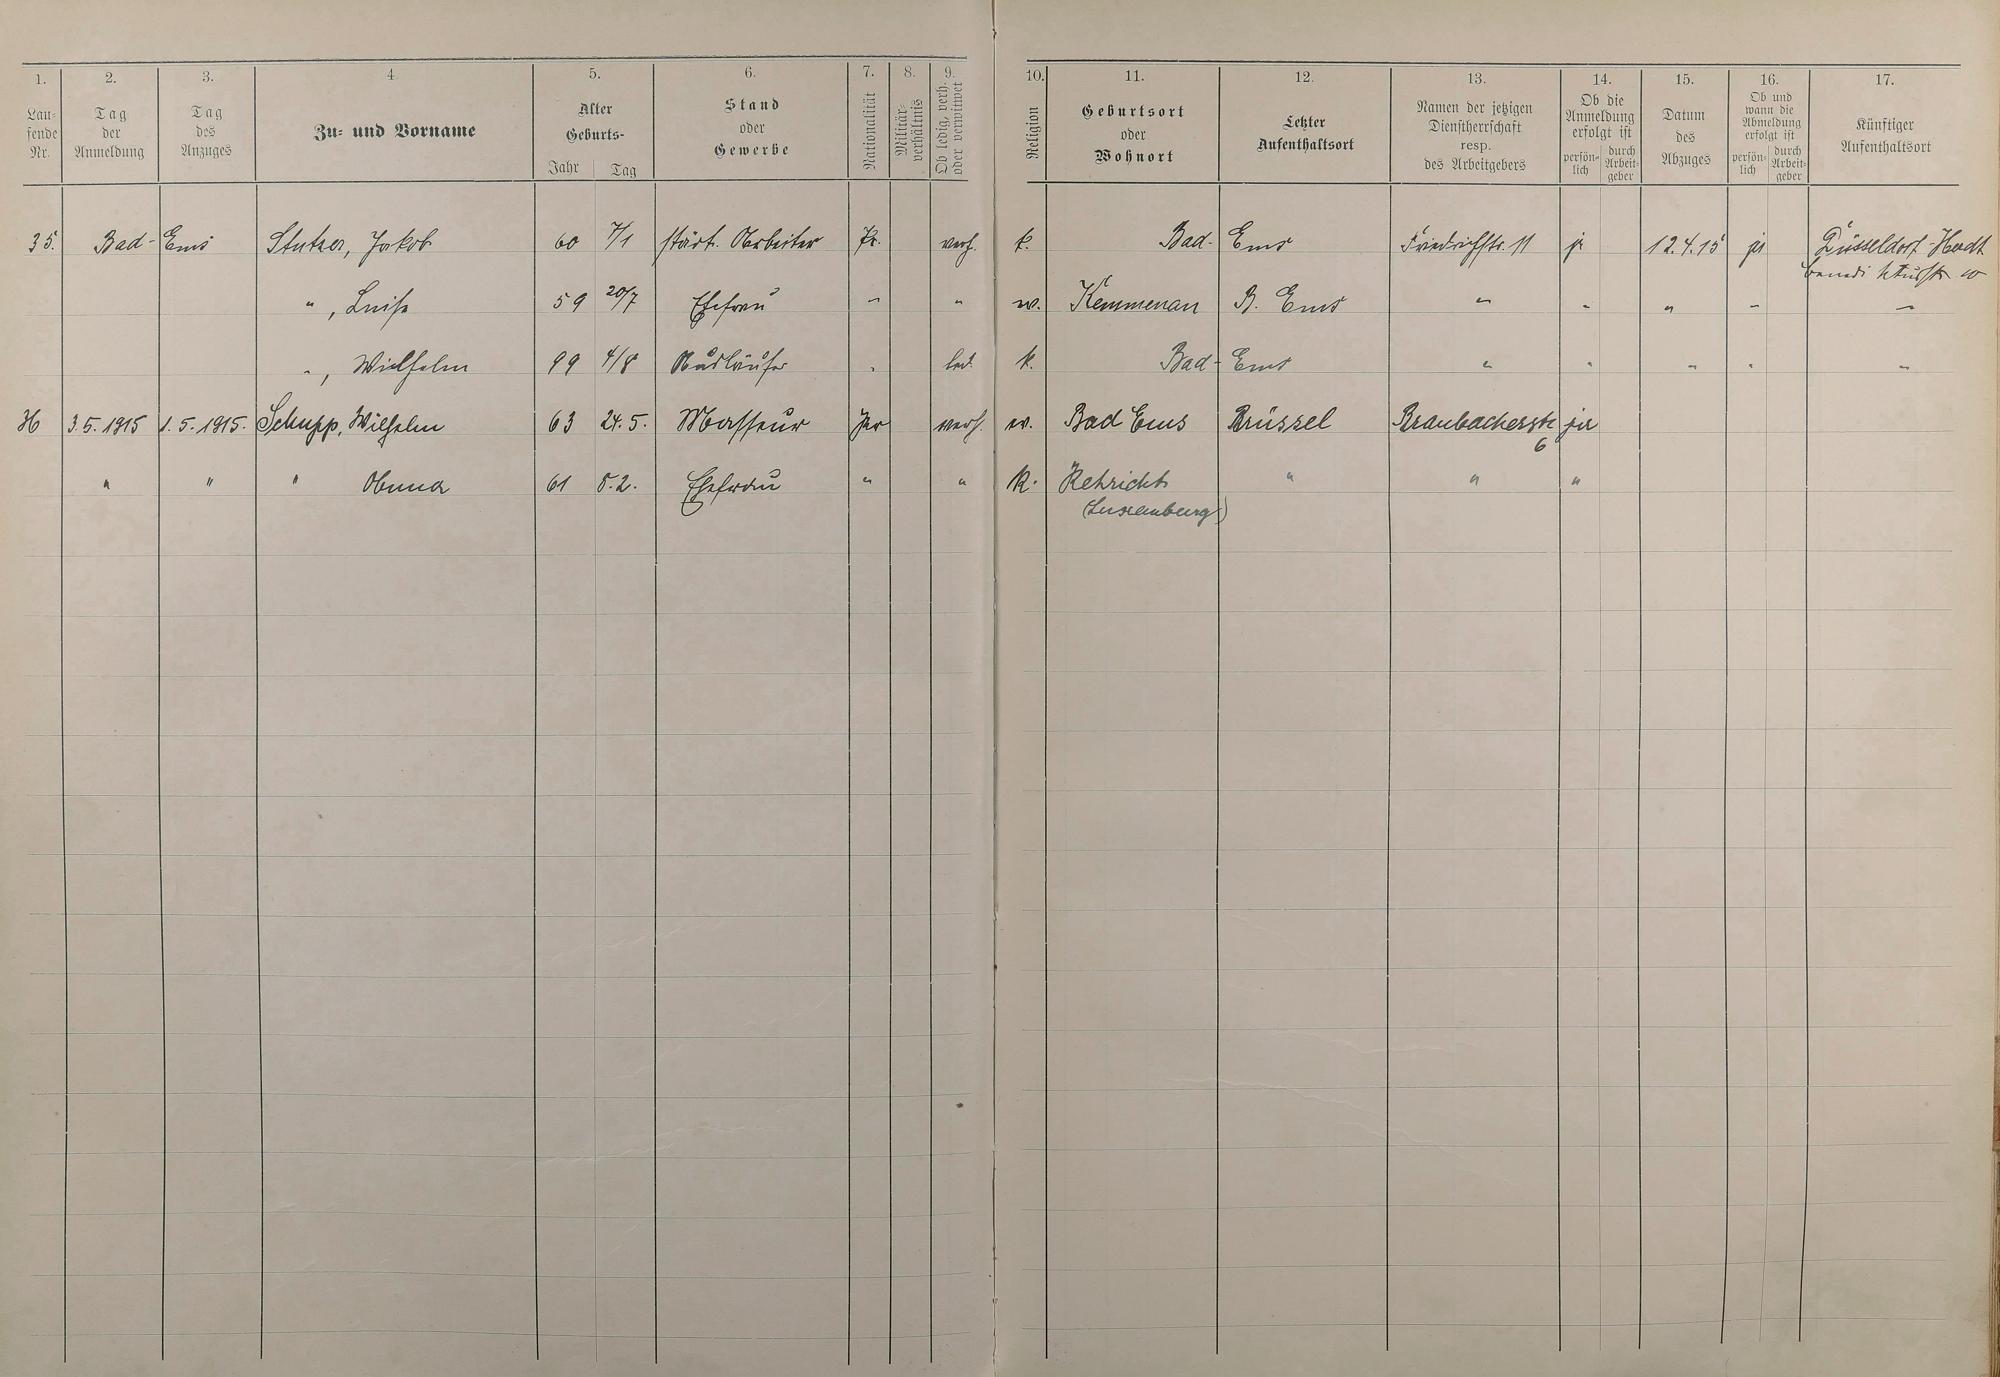 1. 2. 3. 4. 5. 6. 7. 8. 9. 10. 11. 12. 13. 14. 15. 16. 17.
Laufende Nr.
Tag der Anmeldung
Tag des Anzuges
Zu- und Vorname
Alter Geburts-
Jahr Tag
Stand oder Gewerbe
Nationalität
Militärverhältnis
Ob ledig, verh. oder verwitwet
Religion
Geburtsort oder Wohnort
Letzter Aufenthaltsort
Namen der jetzigen Dienstherrschaft resp. des Arbeitgebers
Ob die Anmeldung erfolgt ist
persönlich durch Arbeitgeber
Datum des Abzuges
Ob und wann die Abmeldung erfolgt ist
persönlich durch Arbeitgeber
Künftiger Aufenthaltsort
35. Bad-Ems Stutzer, Jakob 60 7/1 städt. Arbeiter Pr. verh. k. Bad-Ems Friedrichstr. 11 ja 12.4.15 ja Düsseldorf-Heerdt
" , Luise 59 20/7 Ehefrau " " w. Kemmenau B. Ems " " " " "
" , Wilhelm 99 4/8 Ausläufer " led. k. Bad-Ems " " " " "
36 3.5.1915 1.5.1915. Schupp, Wilhelm 63 24.5. Masseur Pr verh. w. Bad Ems Brüssel Braubacherstr ja
6
" " " Anna 61 5.2. Ehefrau " " k. Kehricht " " "
(Luxemburg)